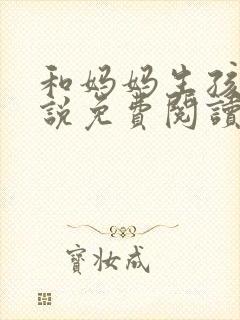 和妈妈生孩
說免費閱讀
寳妆成